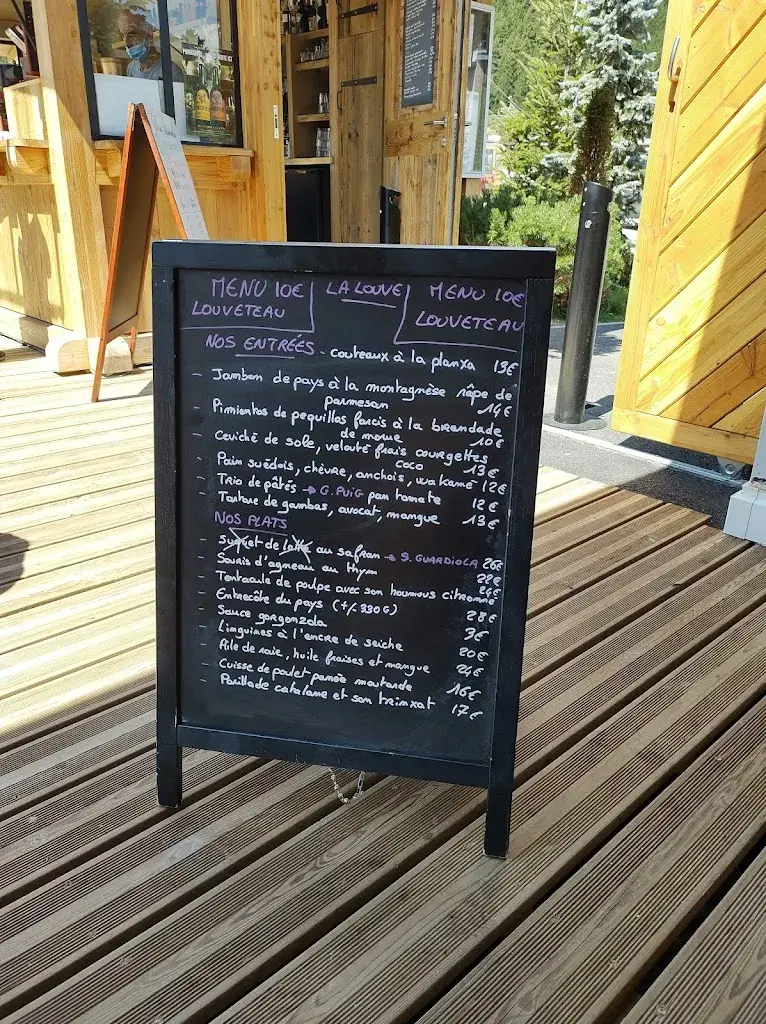 MENU 10€ LOUVETEAU
LA LOUVE
MENU 10€ LOUVETEAU
NOS ENTRÉES - couteaux à la planxa 13€
- Jambon de pays à la montagnèse râpe de
parmesan 14€
- Pimientos de pequillos farcis à la brandade
de morue 10€
- Ceviché de sole, velouté frais courgettes
coco 13€
- Pain suédois, chèvre, anchois, wakamé 12€
- Trio de pâtés → G. PUIG pan tomate 12€
- Tartare de gambas, avocat, mangue 13€
NOS PLATS
- Suquet de lotte au safran → S. GUARDIOLA 26€
- Souris d'agneau au thym 22€
- Tentacule de poulpe avec son houmous citronné 24€
- Entrecôte du pays (+/- 330G) 28€
- Sauce gorgonzola 3€
- Linguines à l'encre de seiche 20€
- Aile de raie, huile fraises et mangue 24€
- Cuisse de poulet panée moutarde 16€
- Parillade catalane et son trinxat 17€